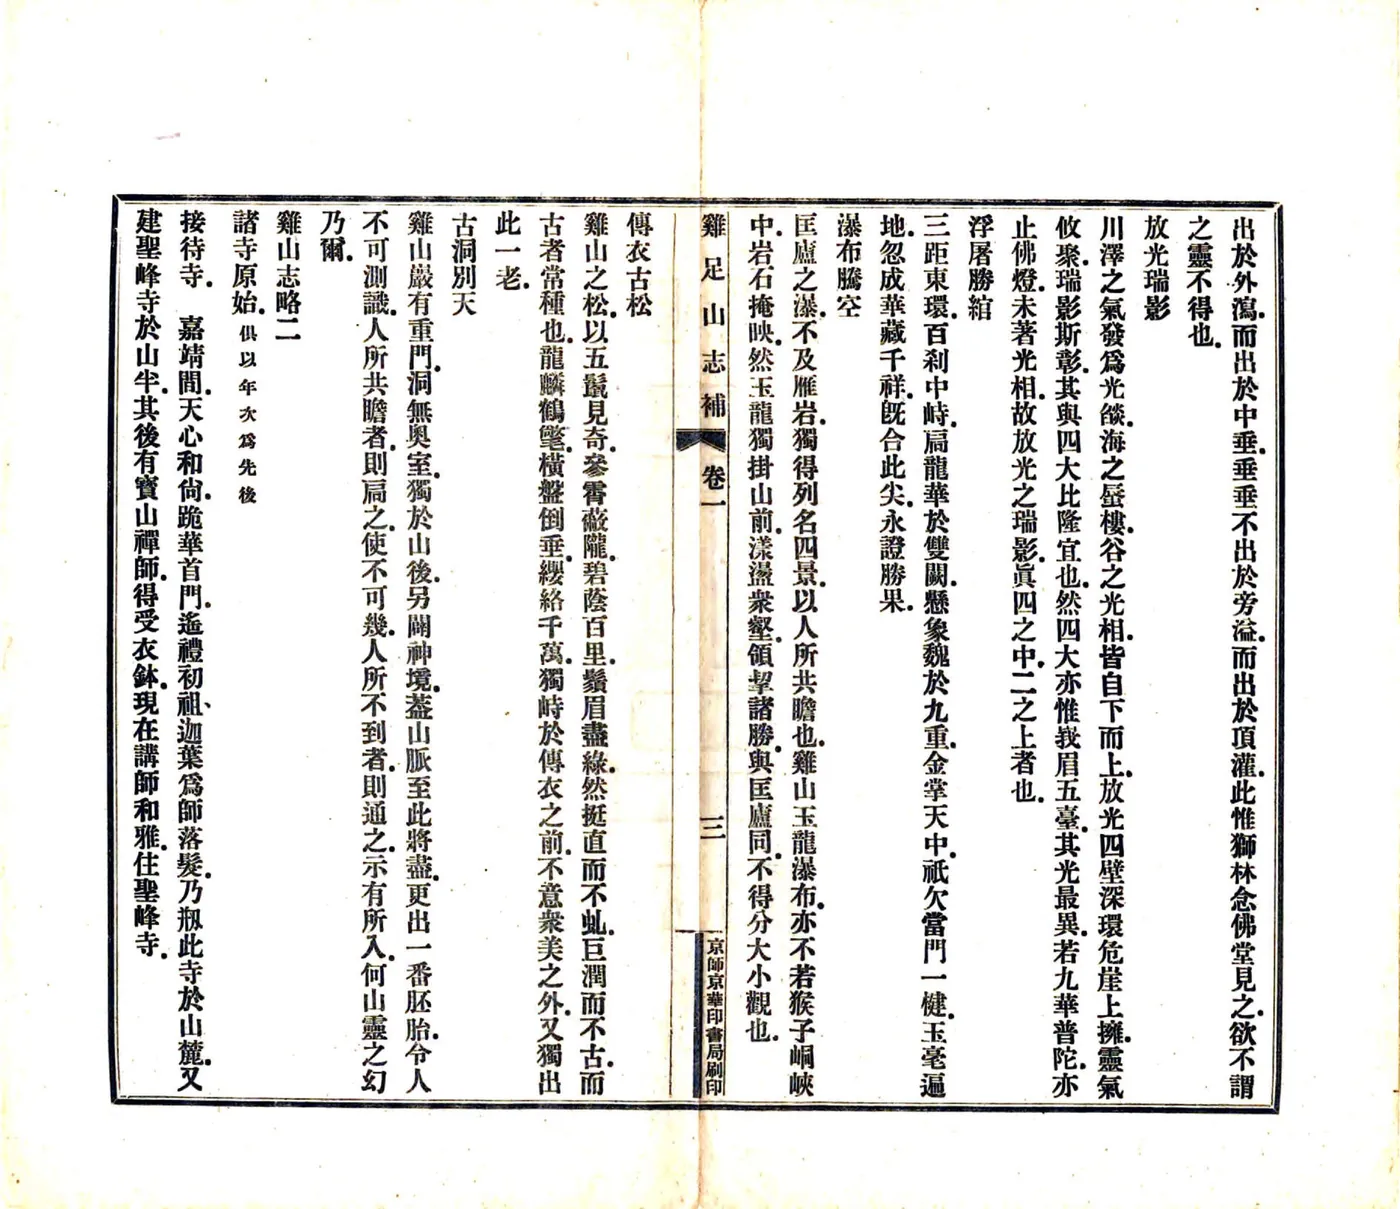 出於外瀉.而出於中垂.垂垂不出於旁溢.而出於頂灌.此惟獅林念佛堂見之.欲不謂
之靈不得也.
放光瑞影
川澤之氣發爲光燄.海之蜃樓.谷之光相.皆自下而上.放光四壁深環.危崖上擁.靈氣
攸聚.瑞影斯彰.其與四大比隆宜也.然四大亦惟峩眉五臺.其光最異.若九華普陀.亦
止佛燈.未著光相.故放光之瑞影.眞四之中.二之上者也.
浮屠勝綰
三距東環.百刹中峙.扃龍華於雙闕.懸象魏於九重.金掌天中.祇欠當門一楗.玉毫遍
地.忽成華藏千祥.旣合此尖.永證勝果.
瀑布騰空
匡廬之瀑.不及雁岩.獨得列名四景.以人所共瞻也.雞山玉龍瀑布.亦不若猴子峒峽
中.岩石掩映.然玉龍獨掛山前.漾盪衆壑.領挈諸勝.與匡廬同.不得分大小觀也.
雞足山志補 卷一 三 京師京華印書局刷印
傳衣古松
雞山之松.以五鬣見奇.參霄蔽隴.碧蔭百里.鬚眉盡綠.然挺直而不虬.巨潤而不古.而
古者常種也.龍鱗鶴氅.橫盤倒垂.纓絡千萬.獨峙於傳衣之前.不意衆美之外.又獨出
此一老.
古洞別天
雞山巖有重門.洞無奧室.獨於山後.另闢神境.蓋山脈至此將盡.更出一番胚胎.令人
不可測識.人所共瞻者.則扃之.使不可幾.人所不到者.則通之.示有所入.何山靈之幻
乃爾.
雞山志略二
諸寺原始.俱以年次爲先後
接待寺. 嘉靖間.天心和尙.跪華首門.遙禮初祖、迦葉爲師落髮.乃剏此寺於山麓.又
建聖峰寺於山半.其後有寶山禪師.得受衣鉢.現在講師和雅.住聖峰寺.